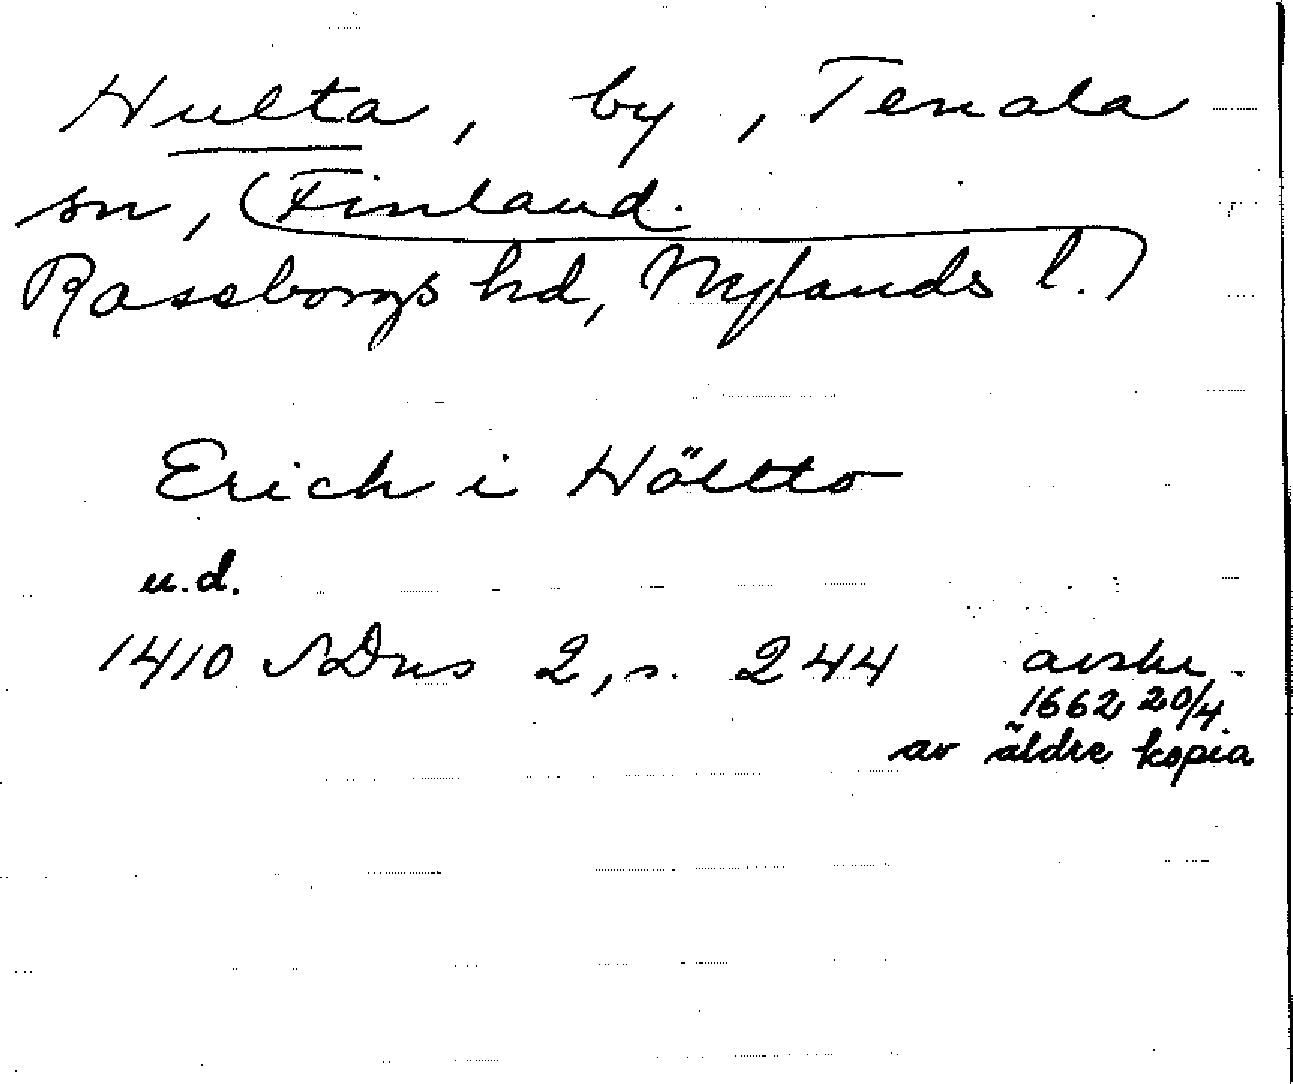 Hulta, by, Tenala
sn, (Finland.
Raseborgs hd, Nylands l.)
Erich i Höltto
u.d.
1410 SDns 2, s. 244 avskr.
1662 20/4
av äldre kopia